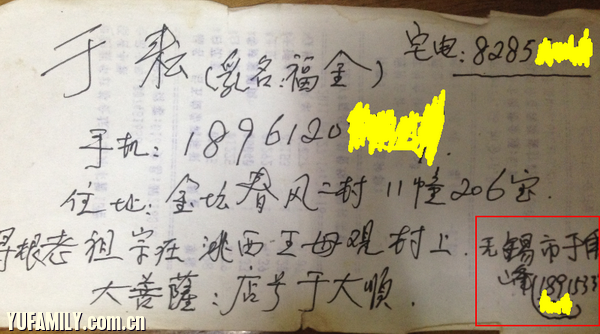 宅电:8285
于耘(乳名:福金)
手机:1896120
住址:金坛春风二村11幢206室.
寻根老祖宗在洮西王母观村上.
大善薩:店号于大順.
无锡市于角
峰(1891533
YUFAMILY.com.cn